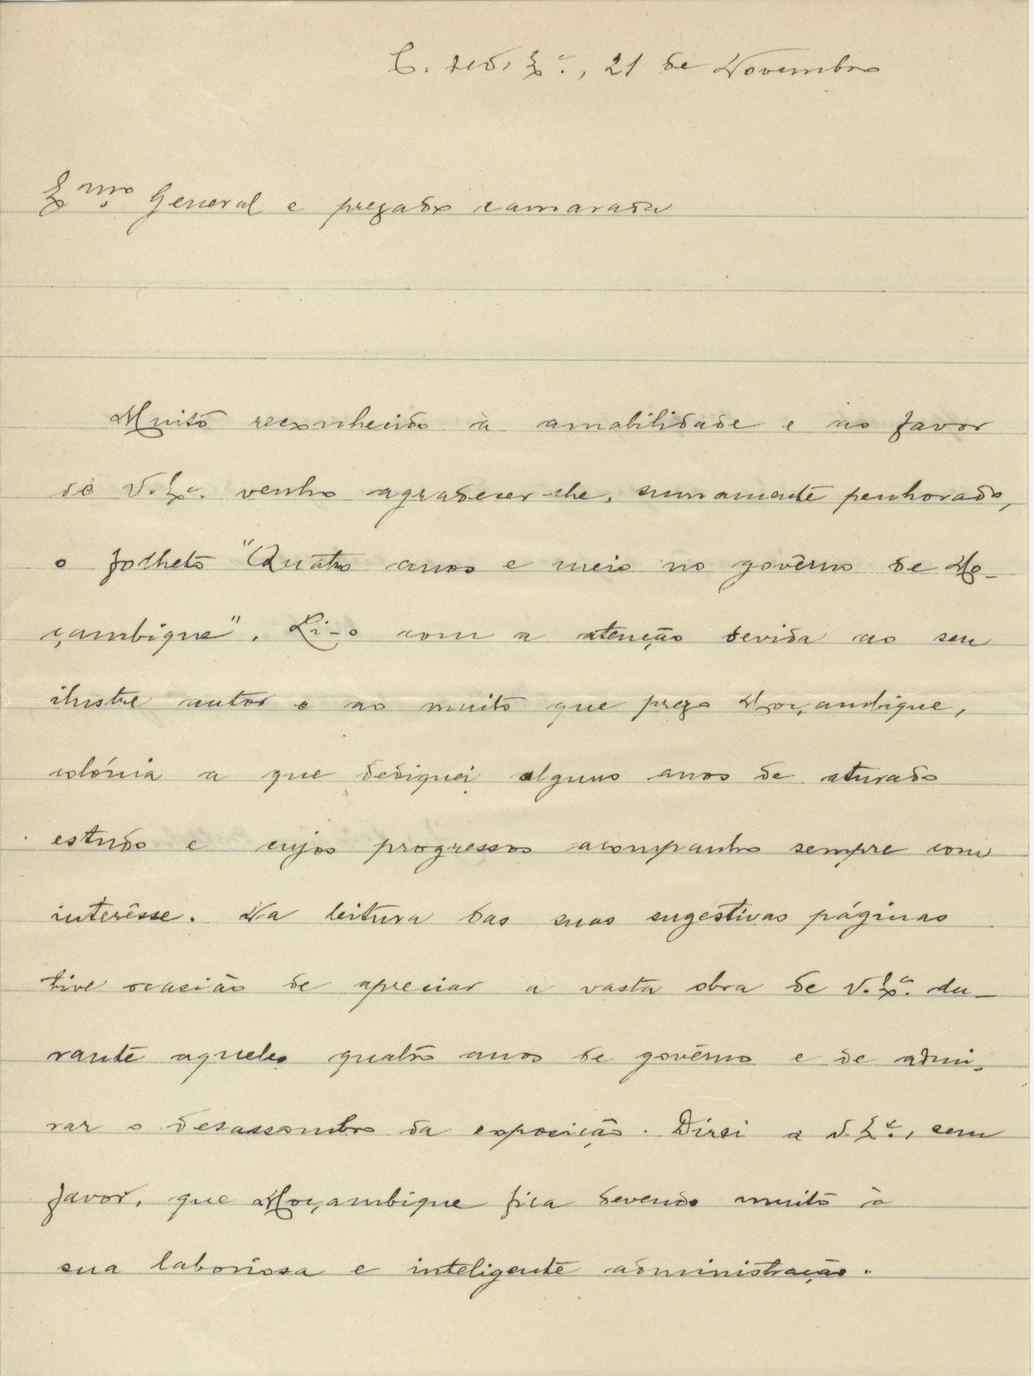 C. de V. Exª., 21 de Novembro
Exmo. General e prezado camarada
Muito reconhecido à amabilidade e ao favor
de V. Exª. venho agradecer-lhe, sumamente penhorado,
o folheto "Quatro anos e meio no govêrno de Mo-
çambique". Li-o com a atenção devida ao seu
ilustre autor e ao muito que prezo Moçambique,
colónia a que dediquei alguns anos de aturado
estudo e cujos progressos acompanho sempre com
interêsse. Na leitura das suas sugestivas páginas
tive ocasião de apreciar a vasta obra de V. Exª. du-
rante aqueles quatro anos de govêrno e de admi-
rar o desassombro da exposição. Direi a V. Exª., sem
favor, que Moçambique fica devendo muito à
sua laboriosa e inteligente administração.